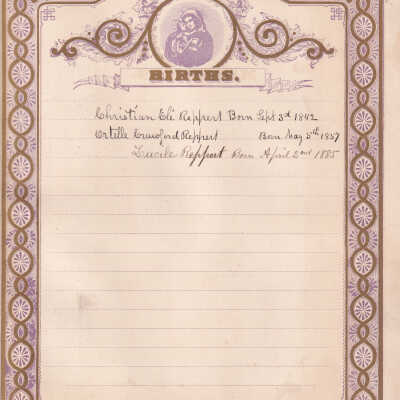 BIRTHS.
Christian Eli Reppert Born Sept 3d 1842
Ortelle Crawford Reppert Born May 5th 1857
Lucile Reppert Born April 2nd 1885